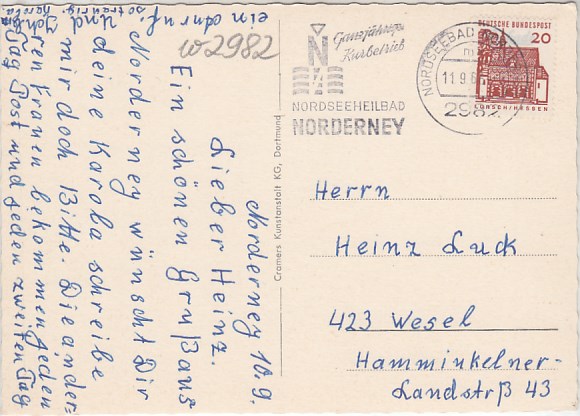 Norderney 10.9.
Lieber Heinz.
Ein schönen Gruß aus
Norderney wünscht Dir
deine Karola schreibe
mir doch Bitte. Die ander-
ren Frauen bekommen jeden
Tag Post und jeden zweiten Tag
ein anruf
und
so traurig.
Karola
W2982
Ganzjähriger
Kurbetrieb
N
NORDSEEHEILBAD
NORDERNEY
NORDSEEBAD NOR
11.9.6
2982
DEUTSCHE BUNDESPOST
20
LORSCH/HESSEN
Cramers Kunstanstalt KG, Dortmund
Herrn
Heinz Luck
423 Wesel
Hamminkelner-
Landstrß 43